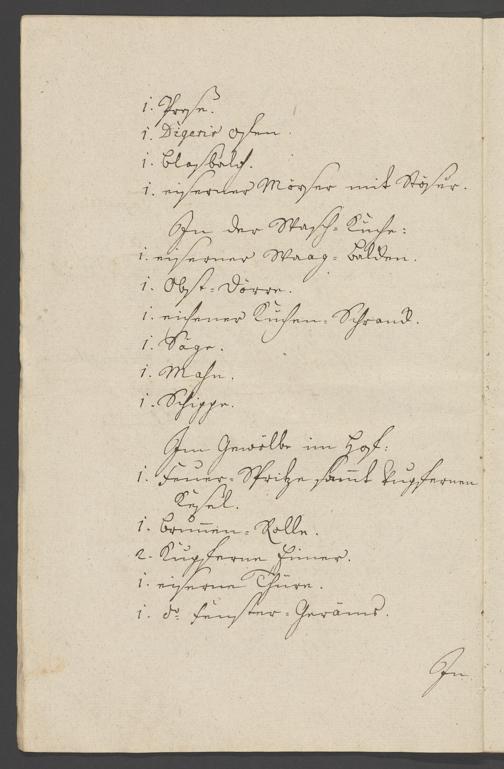 1. Preße.
1. Digerir Ofen.
1. Blasbalch.
1. eiserner Mörser mit Stöser.
In der Wasch-Kuche:
1. eiserner Waag-Balcken.
1. Obst-Dörre.
1. eichener Kuchen-Schranck.
1. Säge.
1. Mahn.
1. Schippe.
Im Gewölbe im Hof:
1. Feuer-Spritze samt kupfernen
Keßel.
1. Brunnen-Rolle.
2. Kupferne Eimer.
1. eiserne Thüre.
1. do. Fenster-Geräms.
In